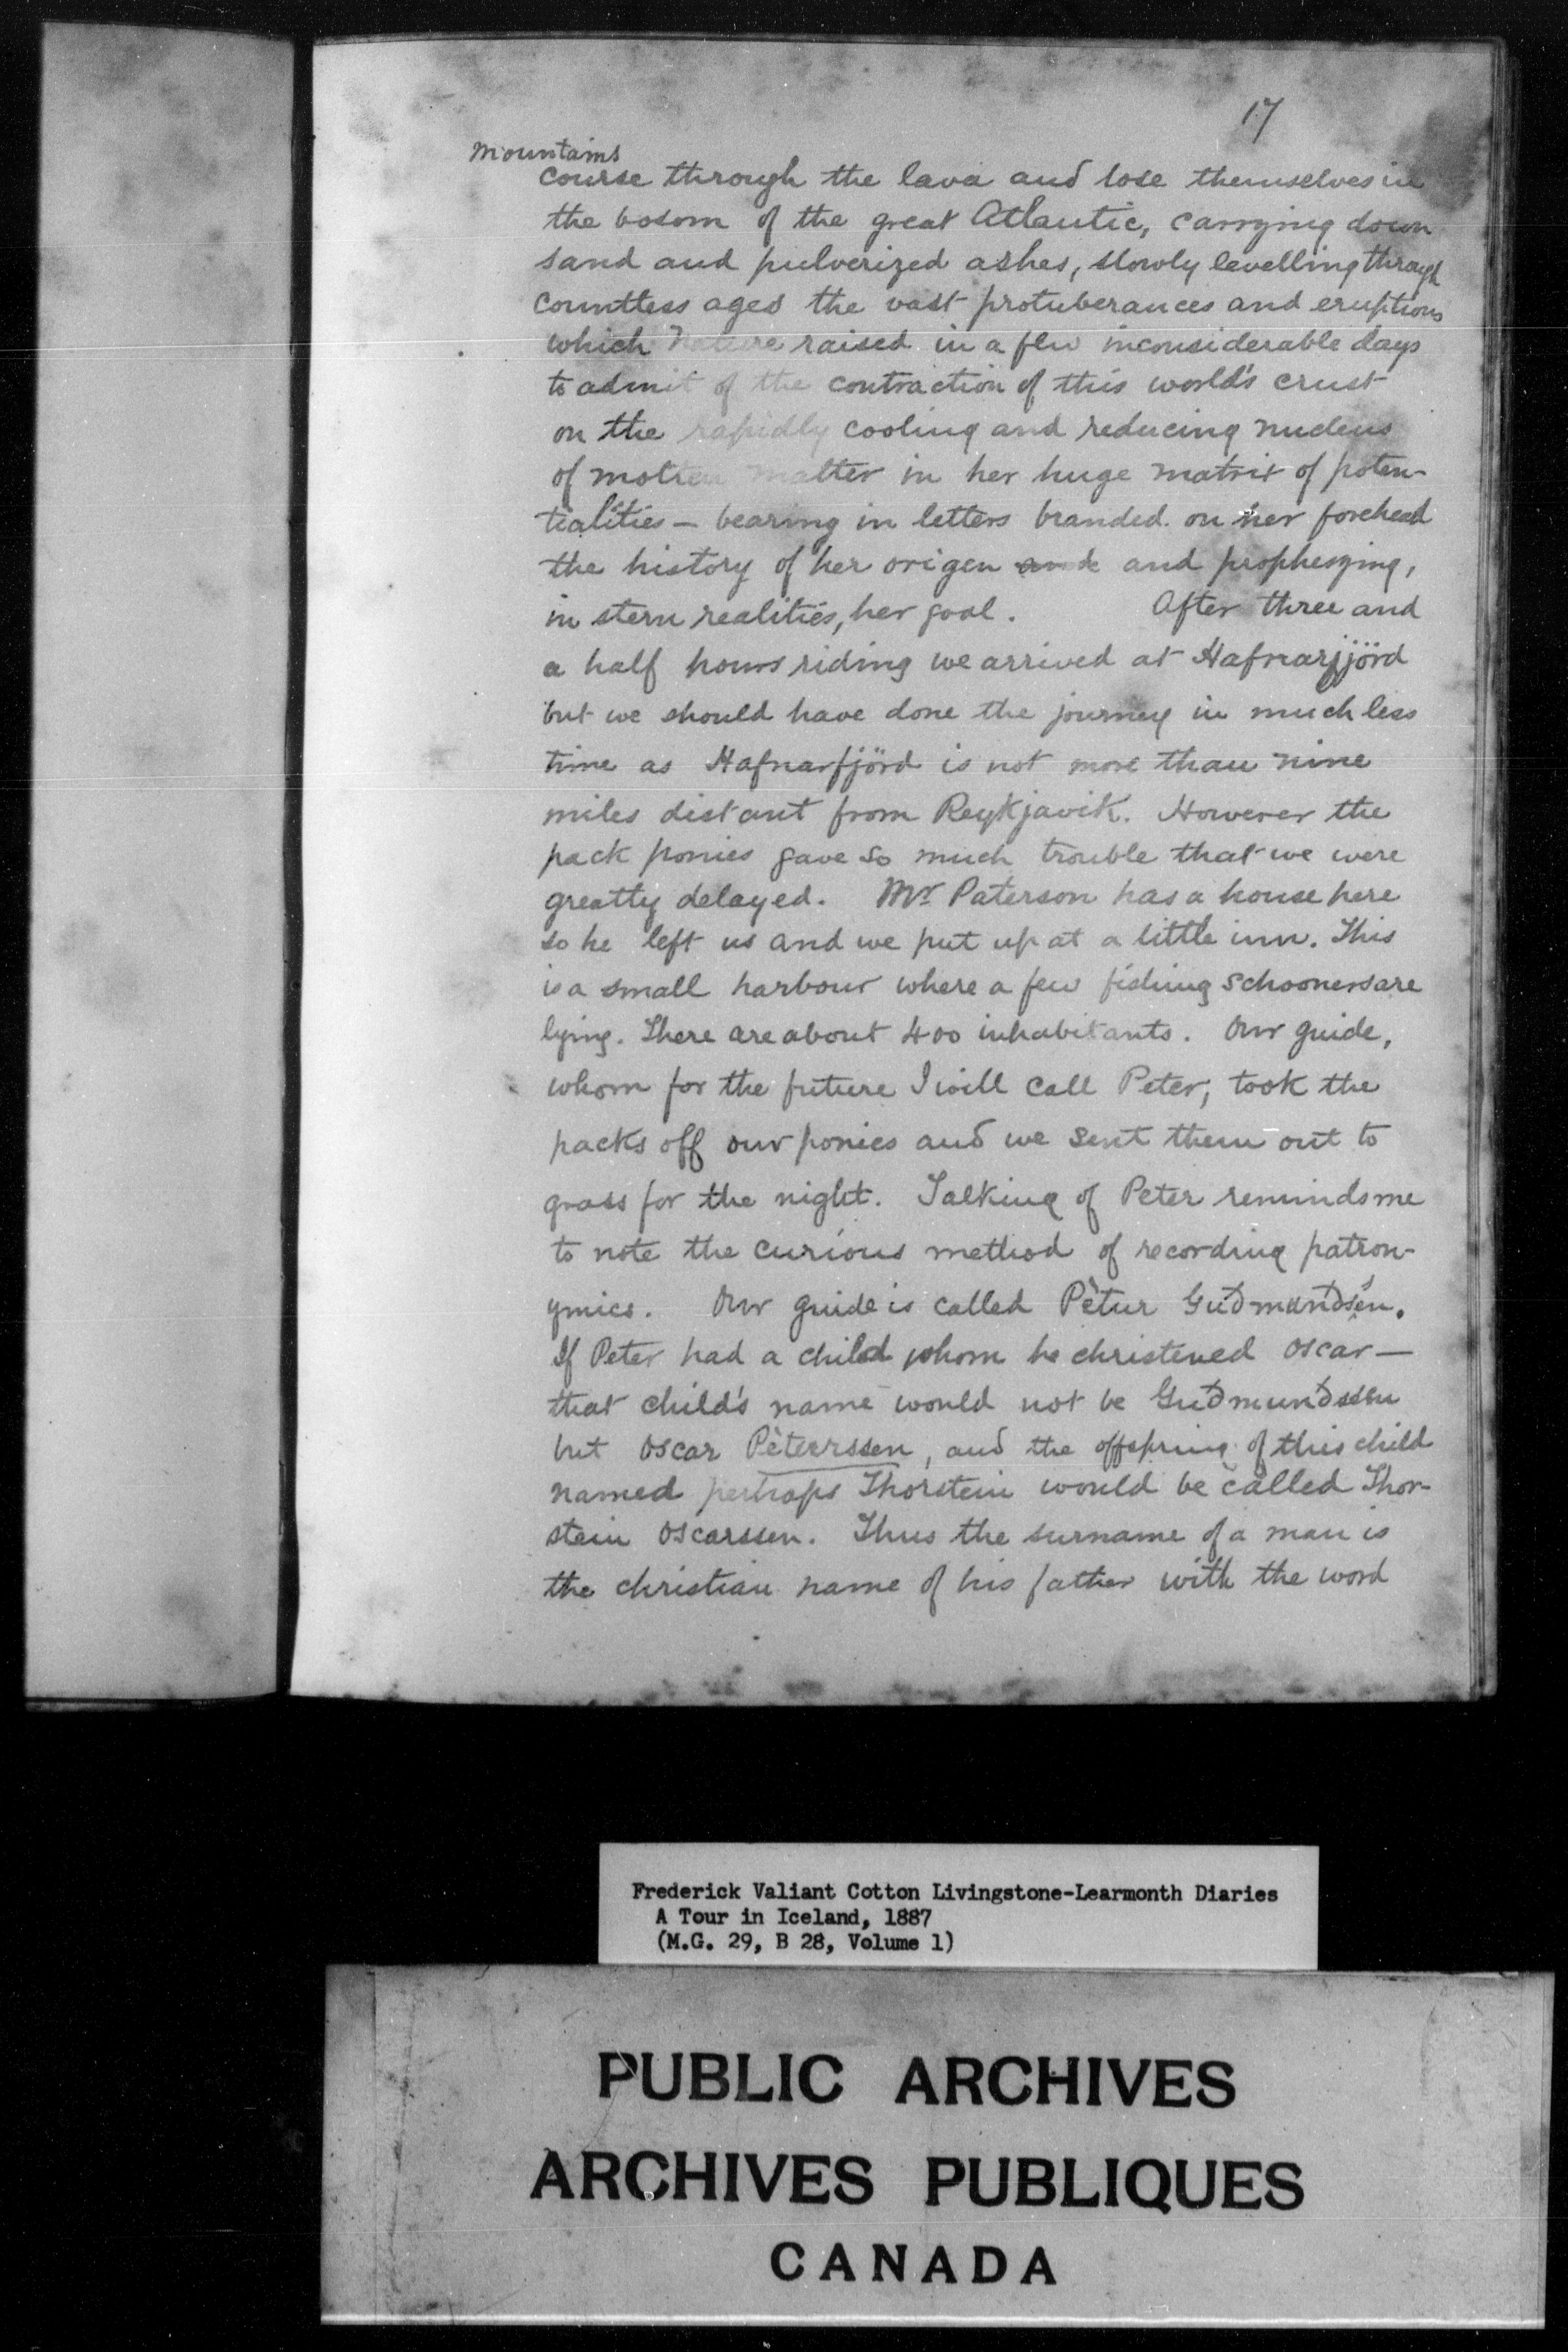 17
mountains
course through the lava and lose themselves in
the bosom of the great Atlantic, carrying down
sand and pulverized ashes, slowly levelling through
countless ages the vast protuberances and eruptions
which Nature raised in a few inconsiderable days
to admit of the contraction of this world's crust
on the rapidly cooling and reducing nucleus
of molten matter in her huge matrix of poten-
tialities — bearing in letters branded on her forehead
the history of her origen and prophesying,
in stern realities, her goal. After three and
a half hours riding we arrived at Hafnarfjörd
but we should have done the journey in much less
time as Hafnarfjörd is not more than nine
miles distant from Reykjavik. However the
pack ponies gave so much trouble that we were
greatly delayed. Mr Paterson has a house here
so he left us and we put up at a little inn. This
is a small harbour where a few fishing schooners are
lying. There are about 400 inhabitants. Our guide,
whom for the future I will call Peter, took the
packs off our ponies and we sent them out to
grass for the night. Talking of Peter reminds me
to note the curious method of recording patron-
ymics. Our guide is called Pètur Guðmundsen.
If Peter had a child whom he christened Oscar —
that child's name would not be Guðmundssen
but Oscar Pèterssen, and the offspring of this child
named perhaps Thorstein would be called Thor-
stein Oscarssen. Thus the surname of a man is
the christian name of his father with the word
Frederick Valiant Cotton Livingstone-Learmonth Diaries
A Tour in Iceland, 1887
(M.G. 29, B 28, Volume 1)
PUBLIC ARCHIVES
ARCHIVES PUBLIQUES
CANADA